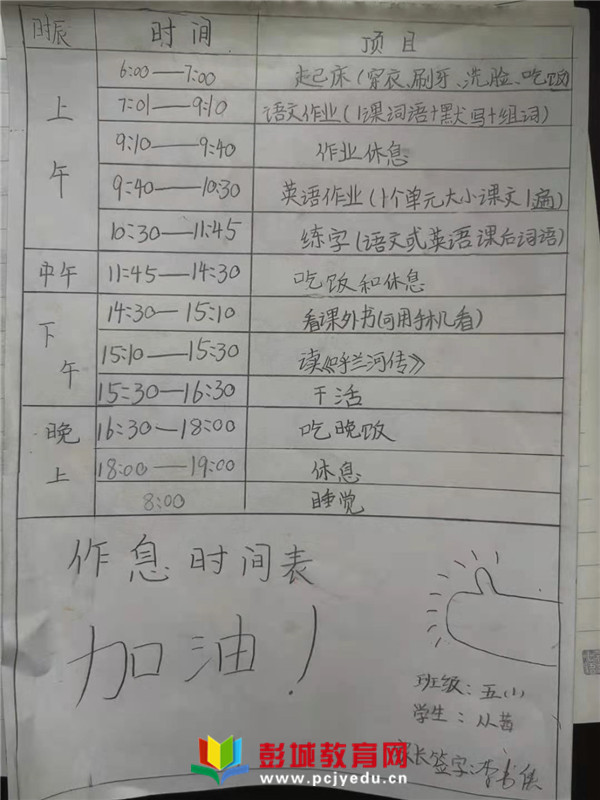 时辰 时间 项目
上午 6:00——7:00 起己床(穿衣、刷牙、洗脸、吃饭)
7:01——9:10 语文作业(1课词语+默写+组词)
9:10——9:40 作业休息
9:40——10:30 英语作业(1个单元大小课文1遍)
10:30——11:45 练字(语文或英语课后词语)
中午 11:45——14:30 吃饭和休息
下午 14:30——15:10 看课外书(可用手机看)
15:10——15:30 读《呼兰河传》
15:30—16:30 干活
晚上 16:30—18:00 吃晚饭
18:00——19:00 休息
8:00 睡觉
作息时间表
加油!
班级:五(1)
学生:从茜
家长签字:李书侠
彭城教育网
www.pcjyedu.cn